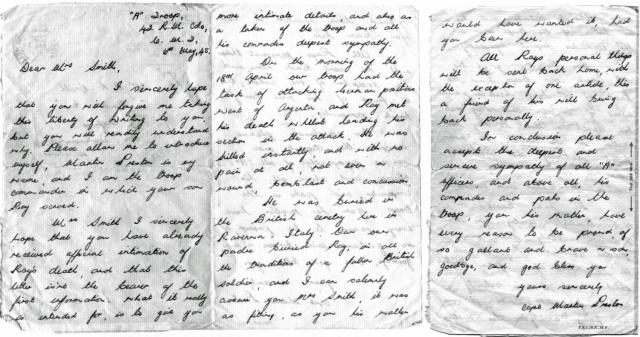 "A" Troop,
43 R.M. Cdo,
C. M. F,
6th May, 45.
Dear Mrs Smith,
I sincerely hope
that you will forgive me taking
this liberty of writing to you,
but you will readily understand
why. Please allow me to introduce
myself, Martin Preston is my
name, and I am the troop
commander in which your son
Ray served.
Mrs Smith I sincerely
hope that you have already
received official intimation of
Ray's death, and that this
letter isn't the bearer of the
first information. What it really
is intended for, is to give you
more intimate details, and also as
a token of the troop and all
his comrades deepest sympathy.
On the morning of the
18th April our troop had the
task of attacking German positions
west of Argenta and Ray met
his death whilst leading his
section in the attack. He was
killed instantly, and with no
pain at all, not even a
wound, bomb blast and concussion.
He was buried in
the British cemetery here in
Ravenna, Italy. Our own
padre buried Ray, in all
the traditions of a British
soldier, and I can solemnly
assure you Mrs Smith, it was
as fitting, as you his mother
would have wanted it, had
you been here.
All Rays personal things
will be sent back home, with
the exception of one article, this
a friend of his will bring
back personally.
In conclusion please
accept the deepest and
sincere sympathy of all "A"
officers, and above all, his
comrades and pals in the
troop, you his mother, have
every reason to be proud of
so gallant and brave a son,
goodbye, and god bless you
yours sincerely
Capt Martin Preston